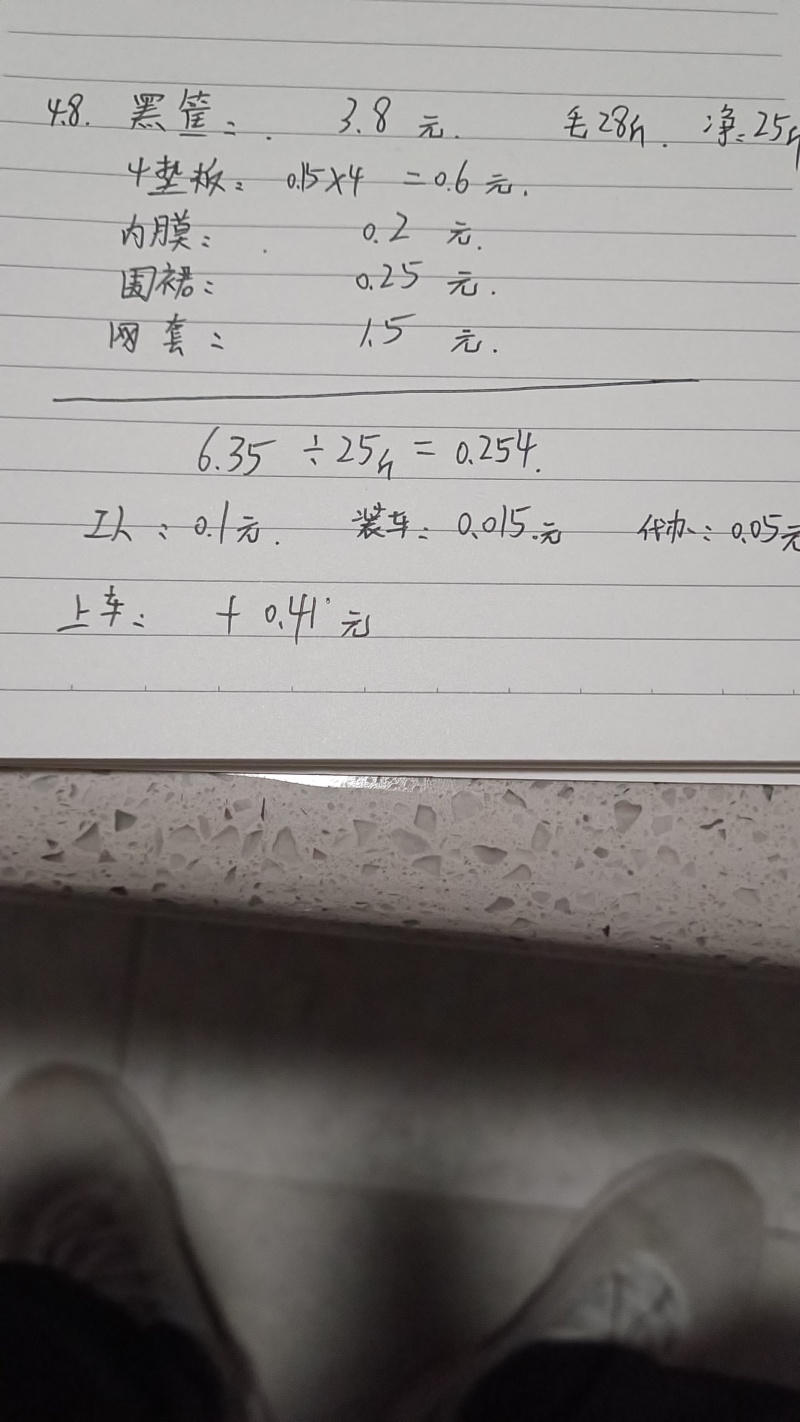 48. 黑筐: 3.8 元. 毛28斤. 净:25斤
4垫板: 0.15×4 =0.6 元.
内膜: 0.2 元.
围裙: 0.25 元.
网套: 1.5 元.
6.35 ÷25斤 = 0.254.
工人: 0.1元. 装车: 0.015.元 代办: 0.05元
上车: + 0.41 元